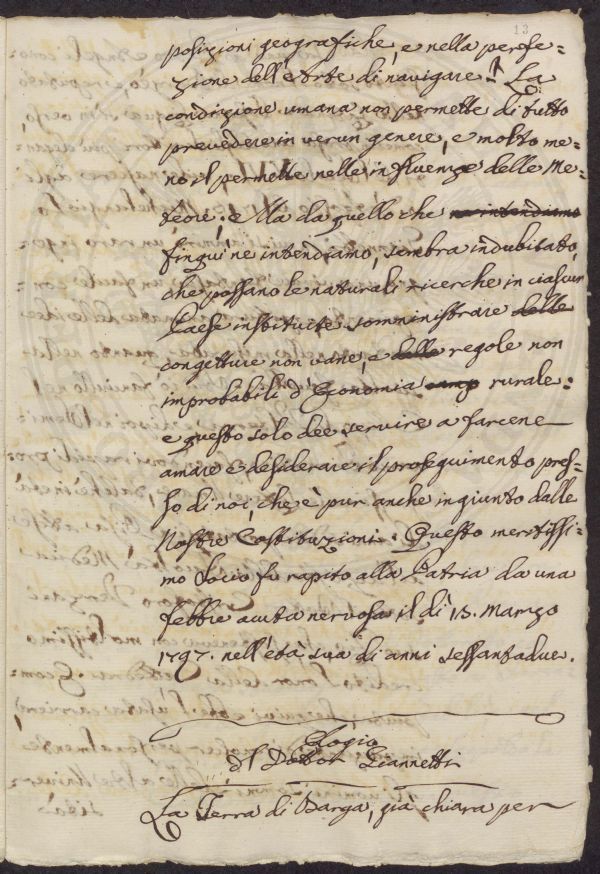 13
posizioni geografiche, e nella perfe=
zione dell'Arte di navigare. La
condizione umana non permette di tutto
prevedere in verun genere, e molto me=
no il permette nelle influenze delle Me=
teore; Ma da quello che ne intendiamo
fin qui ne intendiamo, sembra indubitato,
che possano le naturali ricerche in ciascun
Paese instituite somministrare delle
congetture non vane, e delle regole non
improbabili d'Economia rurale:
e questo solo dee servire a farcene
amare e desiderare il proseguimento pres=
so di noi, che è pur anche ingiunto dalle
Nostre Costituzioni. Questo meritissi=
mo Socio fu rapito alla Patria da una
febbre acuta nervosa il dì 15. Marzo
1797. nell'età sua di anni sessantadue.
Elogio
del Dottor Giannetti
La Terra di Barga, già chiara per